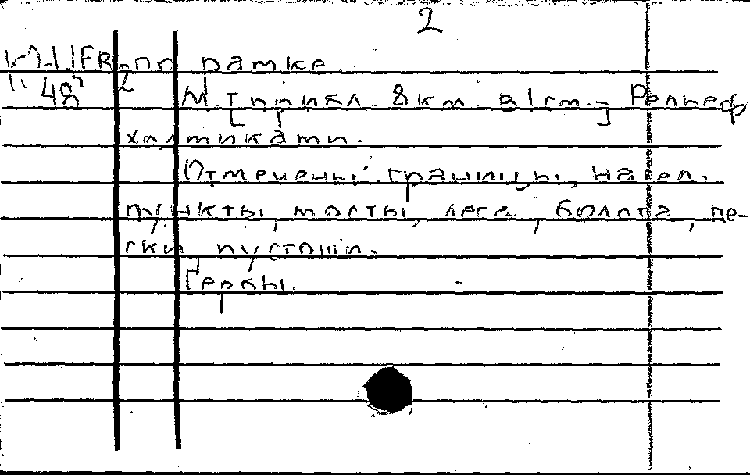 2
по рамке
48 М [прибл. 8 км в 1 см.] Рельеф
холмиками.
Отмечены: границы, насел.
пункты, мосты, леса, болота, пе-
ски, пустоши.
Гербы.